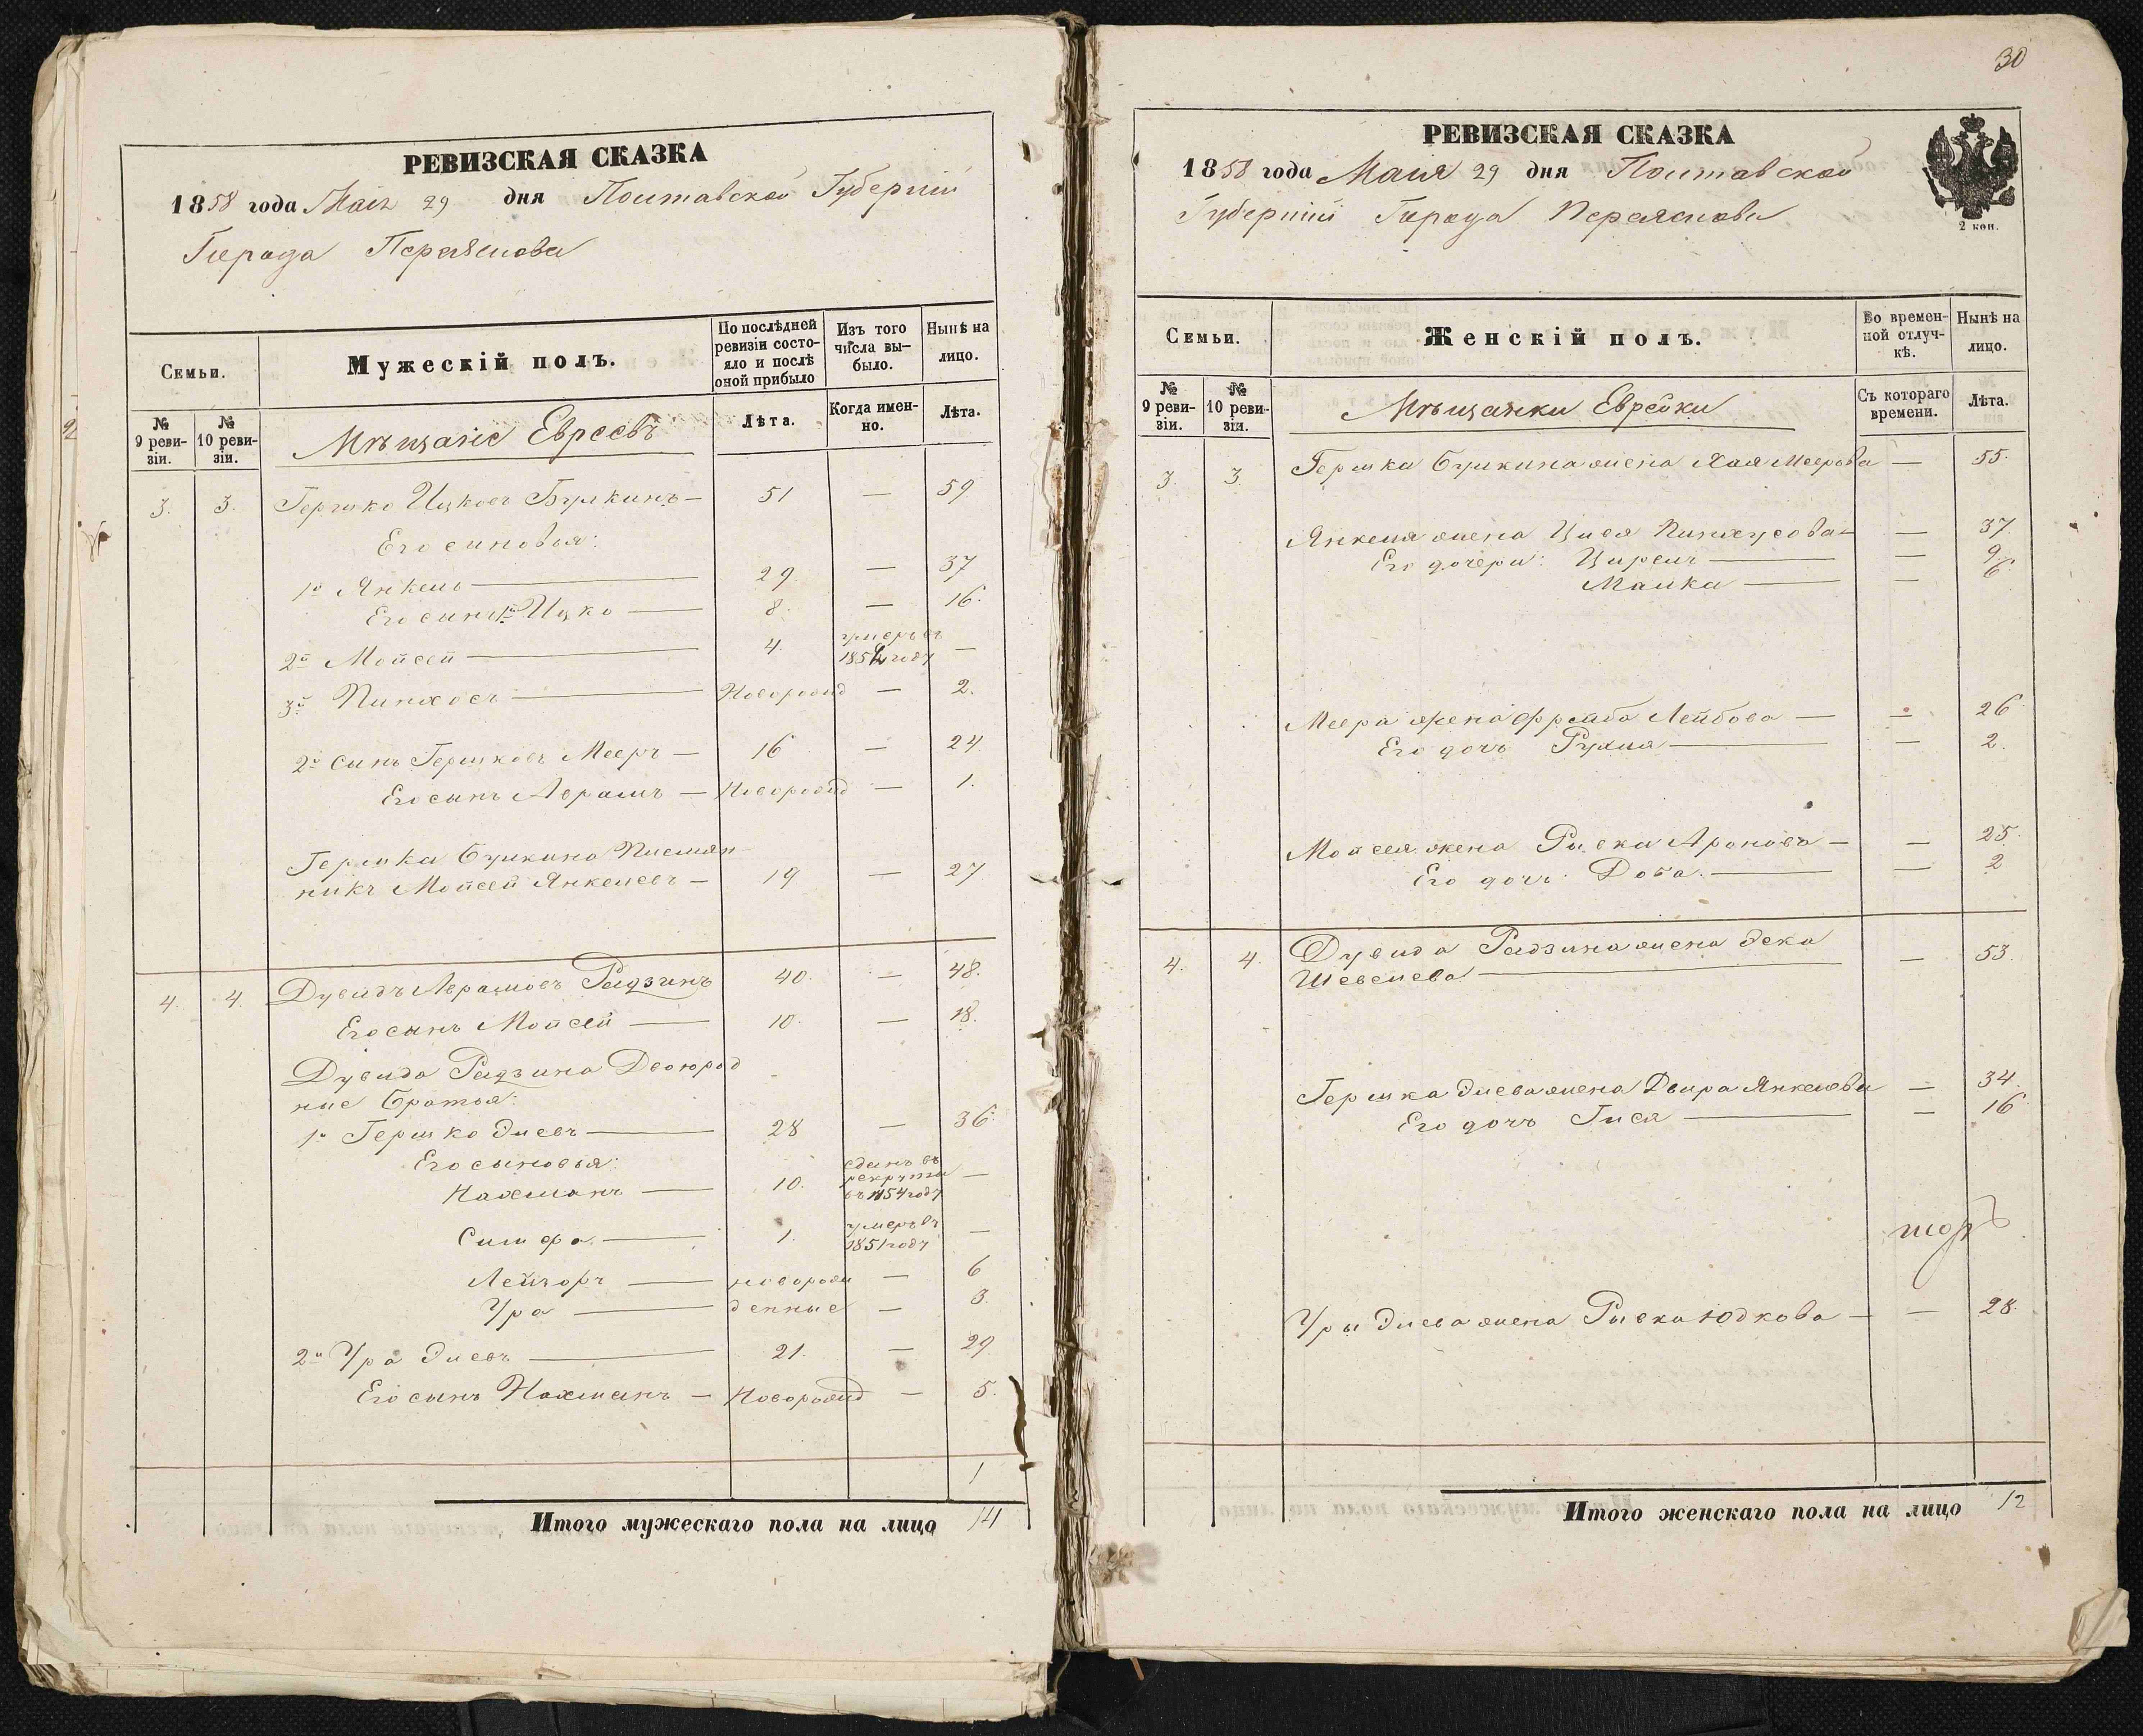 РЕВИЗСКАЯ СКАЗКА
1858 года Маія 29 дня Полтавской Губерніи
Города Переяслова
Семьи.
Мужескій полъ.
По послѣдней ревизіи состояло и послѣ оной прибыло
Изъ того числа выбыло.
Нынѣ на лицо.
№ 9 ревизіи.
№ 10 ревизіи.
Мѣщане Евреевъ
Лѣта.
Когда именно.
Лѣта.
3. 3. Гершко Ицковъ Булкинъ — 51 — 59
Его сыновья:
1й Янкель — 29 — 37
Его сынъ 1й Ицко — 8. — 16.
2й Мойсей — 4. умеръ въ 1852 году —
3й Пинхосъ — Новорожд — 2.
2й Сынъ Гершковъ Мееръ — 16 — 24.
Его сынъ Аврамъ — Новорожд — 1.
Гершка Булкина Племян
никъ Мойсей Янкелевъ — 19 — 27.
4. 4. Дувидъ Аврамовъ Радзинъ 40. — 48.
Его сынъ Мойсей — 10. — 18.
Дувида Радзина Двоюрод
ные Братья:
1й Гершко Эліевъ — 28 — 36.
Его сыновья:
Нахманъ — 10. сданъ въ рекруты въ 1854 году —
1. умеръ въ 1851 году —
Лейзоръ — новорож — 6
Ура — денные — 3.
2й Ура Эліевъ — 21. — 29
Его сынъ Нахманъ — Новорожд — 5.
1
Итого мужескаго пола на лицо 14
30
РЕВИЗСКАЯ СКАЗКА
1858 года Маія 29 дня Полтавской
Губерніи Города Переяслова
2 коп.
Семьи.
Женскій полъ.
Во временной отлучкѣ.
Нынѣ на лицо.
№ 9 ревизіи.
№ 10 ревизіи.
Мѣщанки Еврейки
Съ котораго времени.
Лѣта.
3. 3. Гершка Булкина жена Хая Меерова — 55.
Янкеля жена Цися Пинхусова — 37.
Его дочери: Цирель — — 9.
Малка — — 6.
Меера жена Фрейда Лейбова — — 26
Его дочь Рухля — — 2.
Мойсея жена Рывка Аронова — — 25.
Его дочь: Доба. — — 2
4. 4. Дувида Радзина жена
Шевелева — — 53.
Гершка Эліева жена Двира Янкелева — 34.
Его дочь Гися — — 16
Уры Эліева жена Рывка Юдкова — — 28.
Итого женскаго пола на лицо 12